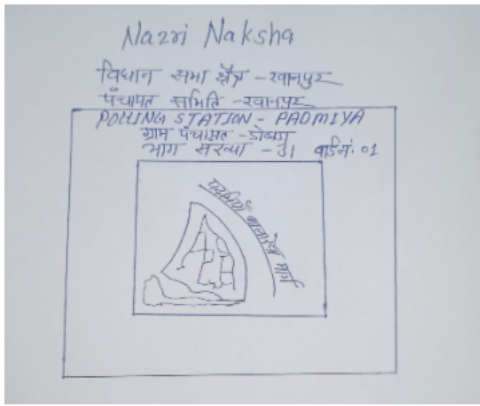 Nazri Naksha
विधान सभा क्षेत्र - खानपुर
पंचायत समिति - खानपुर
POLLING STATION - PADMIYA
ग्राम पंचायत -
भाग संख्या - 31 वार्ड नं. 01
मार्ग